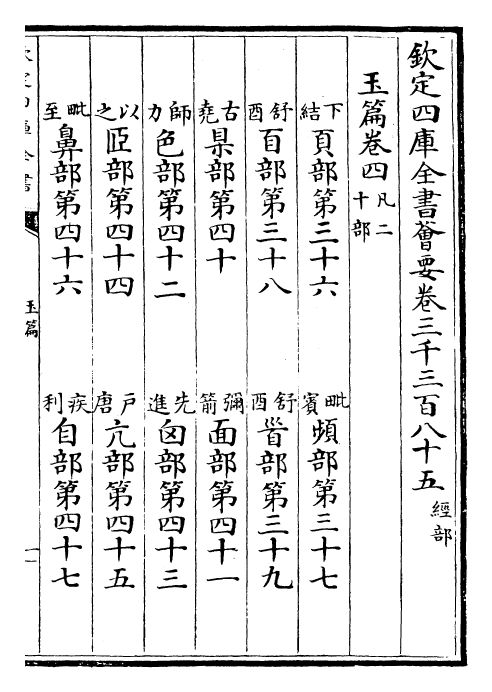 欽定四庫全書薈要卷三千三百八十五 經部
玉篇卷四 凡二十部
下結 頁部第三十六 毗賓 頻部第三十七
舒酉 𦣻部第三十八 舒酉 𩠐部第三十九
古堯 㬎部第四十 彌箭 面部第四十一
師力 色部第四十二 先進 囟部第四十三
以之 𦣞部第四十四 戸唐 亢部第四十五
毗至 鼻部第四十六 疾利 自部第四十七
玉篇
一